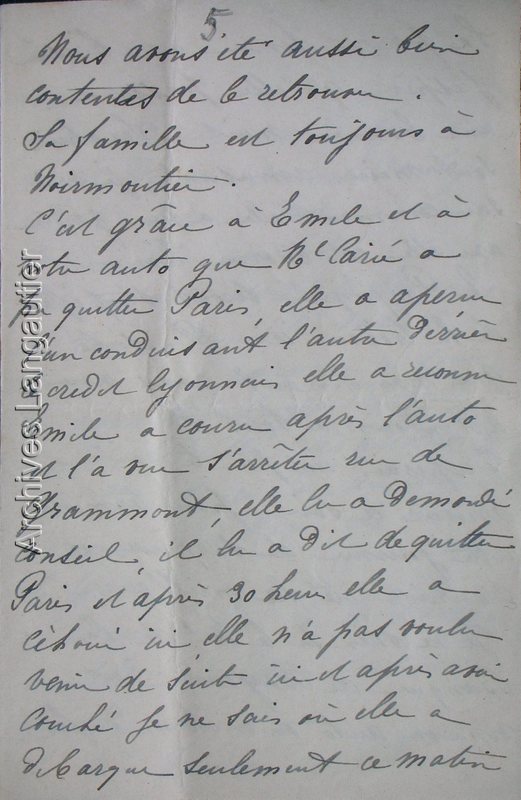 5
Nous avons été aussi bien
contentes de le retrouver.
Sa famille est toujours à
Noirmoutier.
C'est grâce à Emile et à
votre auto que Carié a
pu quitter Paris, elle a aperçu
l'un conduisant l'autre derrière
credit lyonnais elle a reconnu
Emile a couru après l'auto
et l'a vue s'arrêter rue de
Grammont, elle lui a demandé
conseil, il lui a dit de quitter
Paris et après 30 heures elle a
échoué ici, elle n'a pas voulu
venir de suite ici et après avoir
couché je ne sais où elle a
débarqué seulement ce matin
Archives Langautier